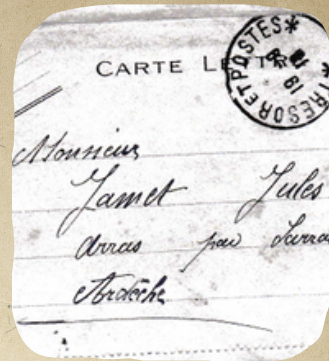 CARTE LETTRE
*TRESOR ET POSTES*
19
Monsieur
Jamet Jules
Arras par Sarras
Ardèche